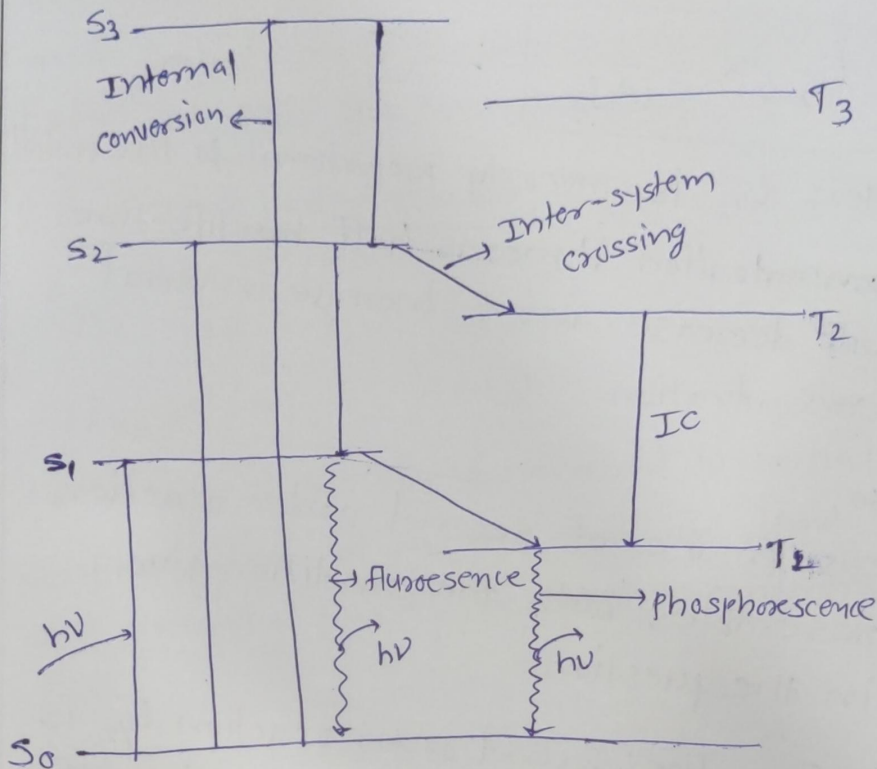 S3
Internal
conversion
T3
Inter-system
crossing
S2
T2
IC
S1
T1
fluroesence
phosphorescence
hν
hν
hν
S0